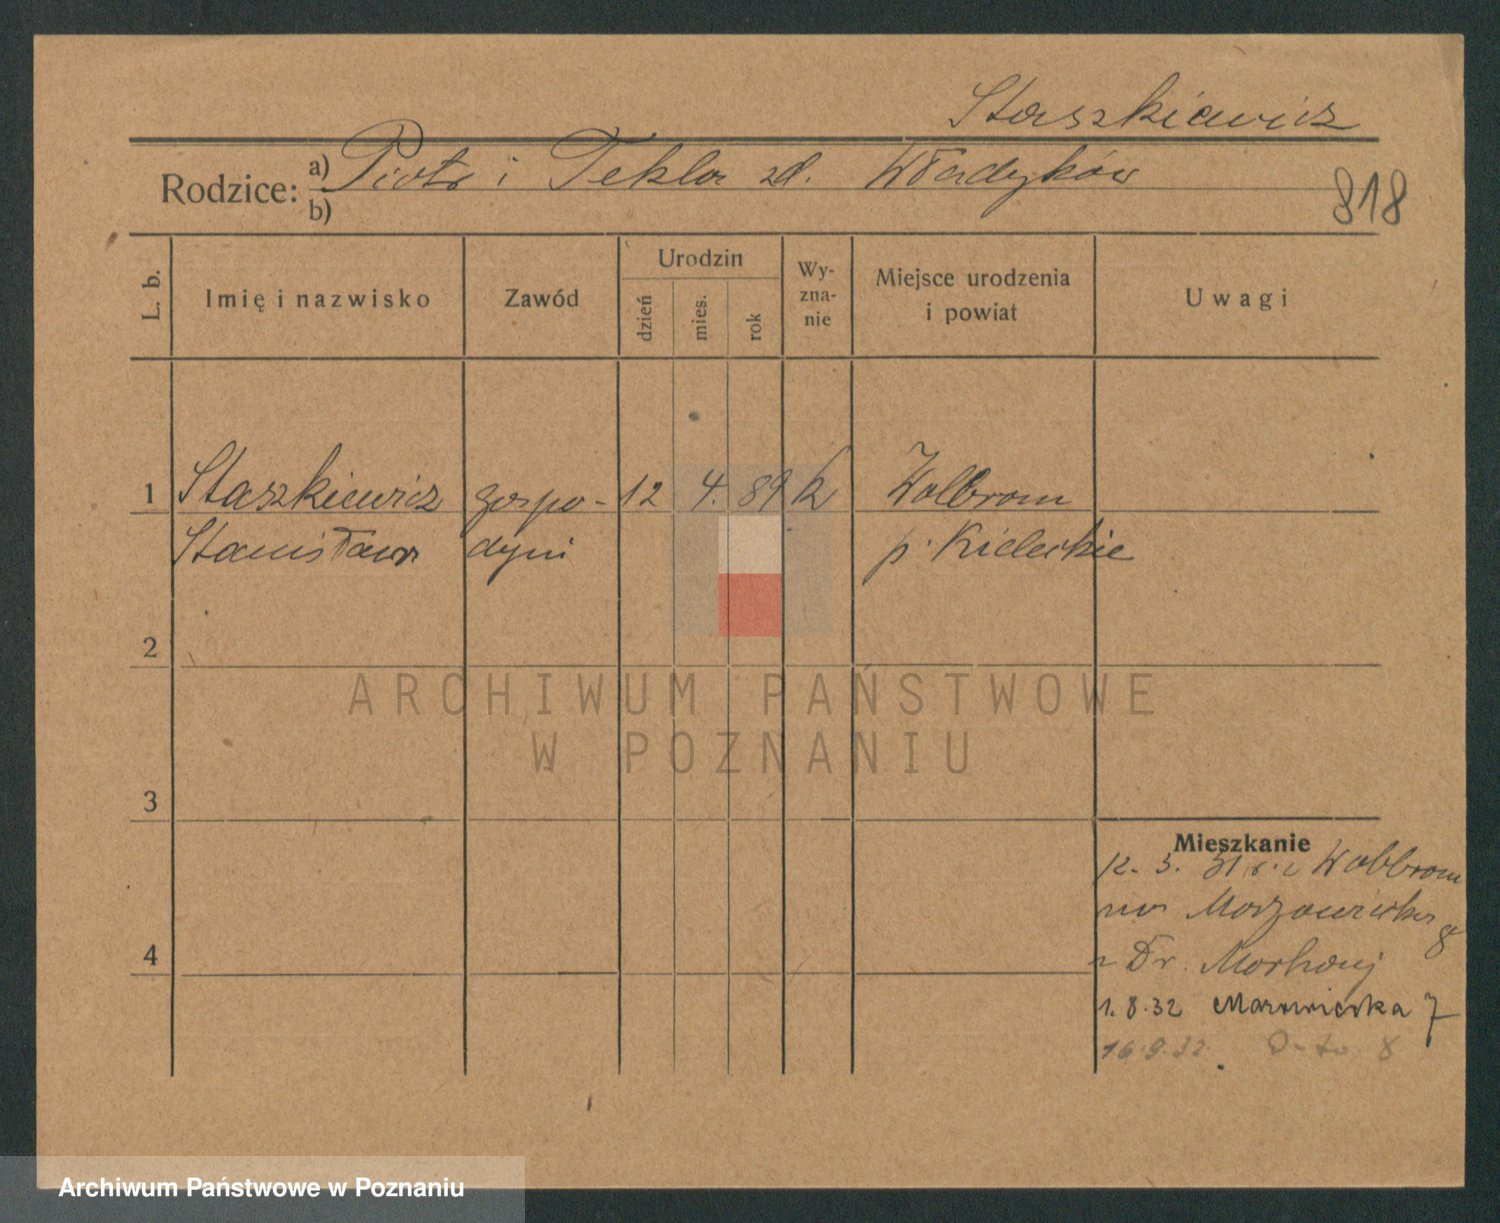 Staszkiewicz
Rodzice: a) Piotr i Tekla zd. Władyków
b)
818
L. b.
Imię i nazwisko
Zawód
Urodzin
dzień
mies.
rok
Wy-
zna-
nie
Miejsce urodzenia
i powiat
Uwagi
1 Staszkiewicz gospo- 12 4. 89 k Wolbrom
Stanisława dyni p. Kieleckie
2
ARCHIWUM PAŃSTWOWE
W POZNANIU
3
Mieszkanie
12. 3. 31 r. z Wolbrom
na Mazowiecka 8
Dr.
4
1.8.32 Mazowiecka 7
16.9.32 D-to 8
Archiwum Państwowe w Poznaniu